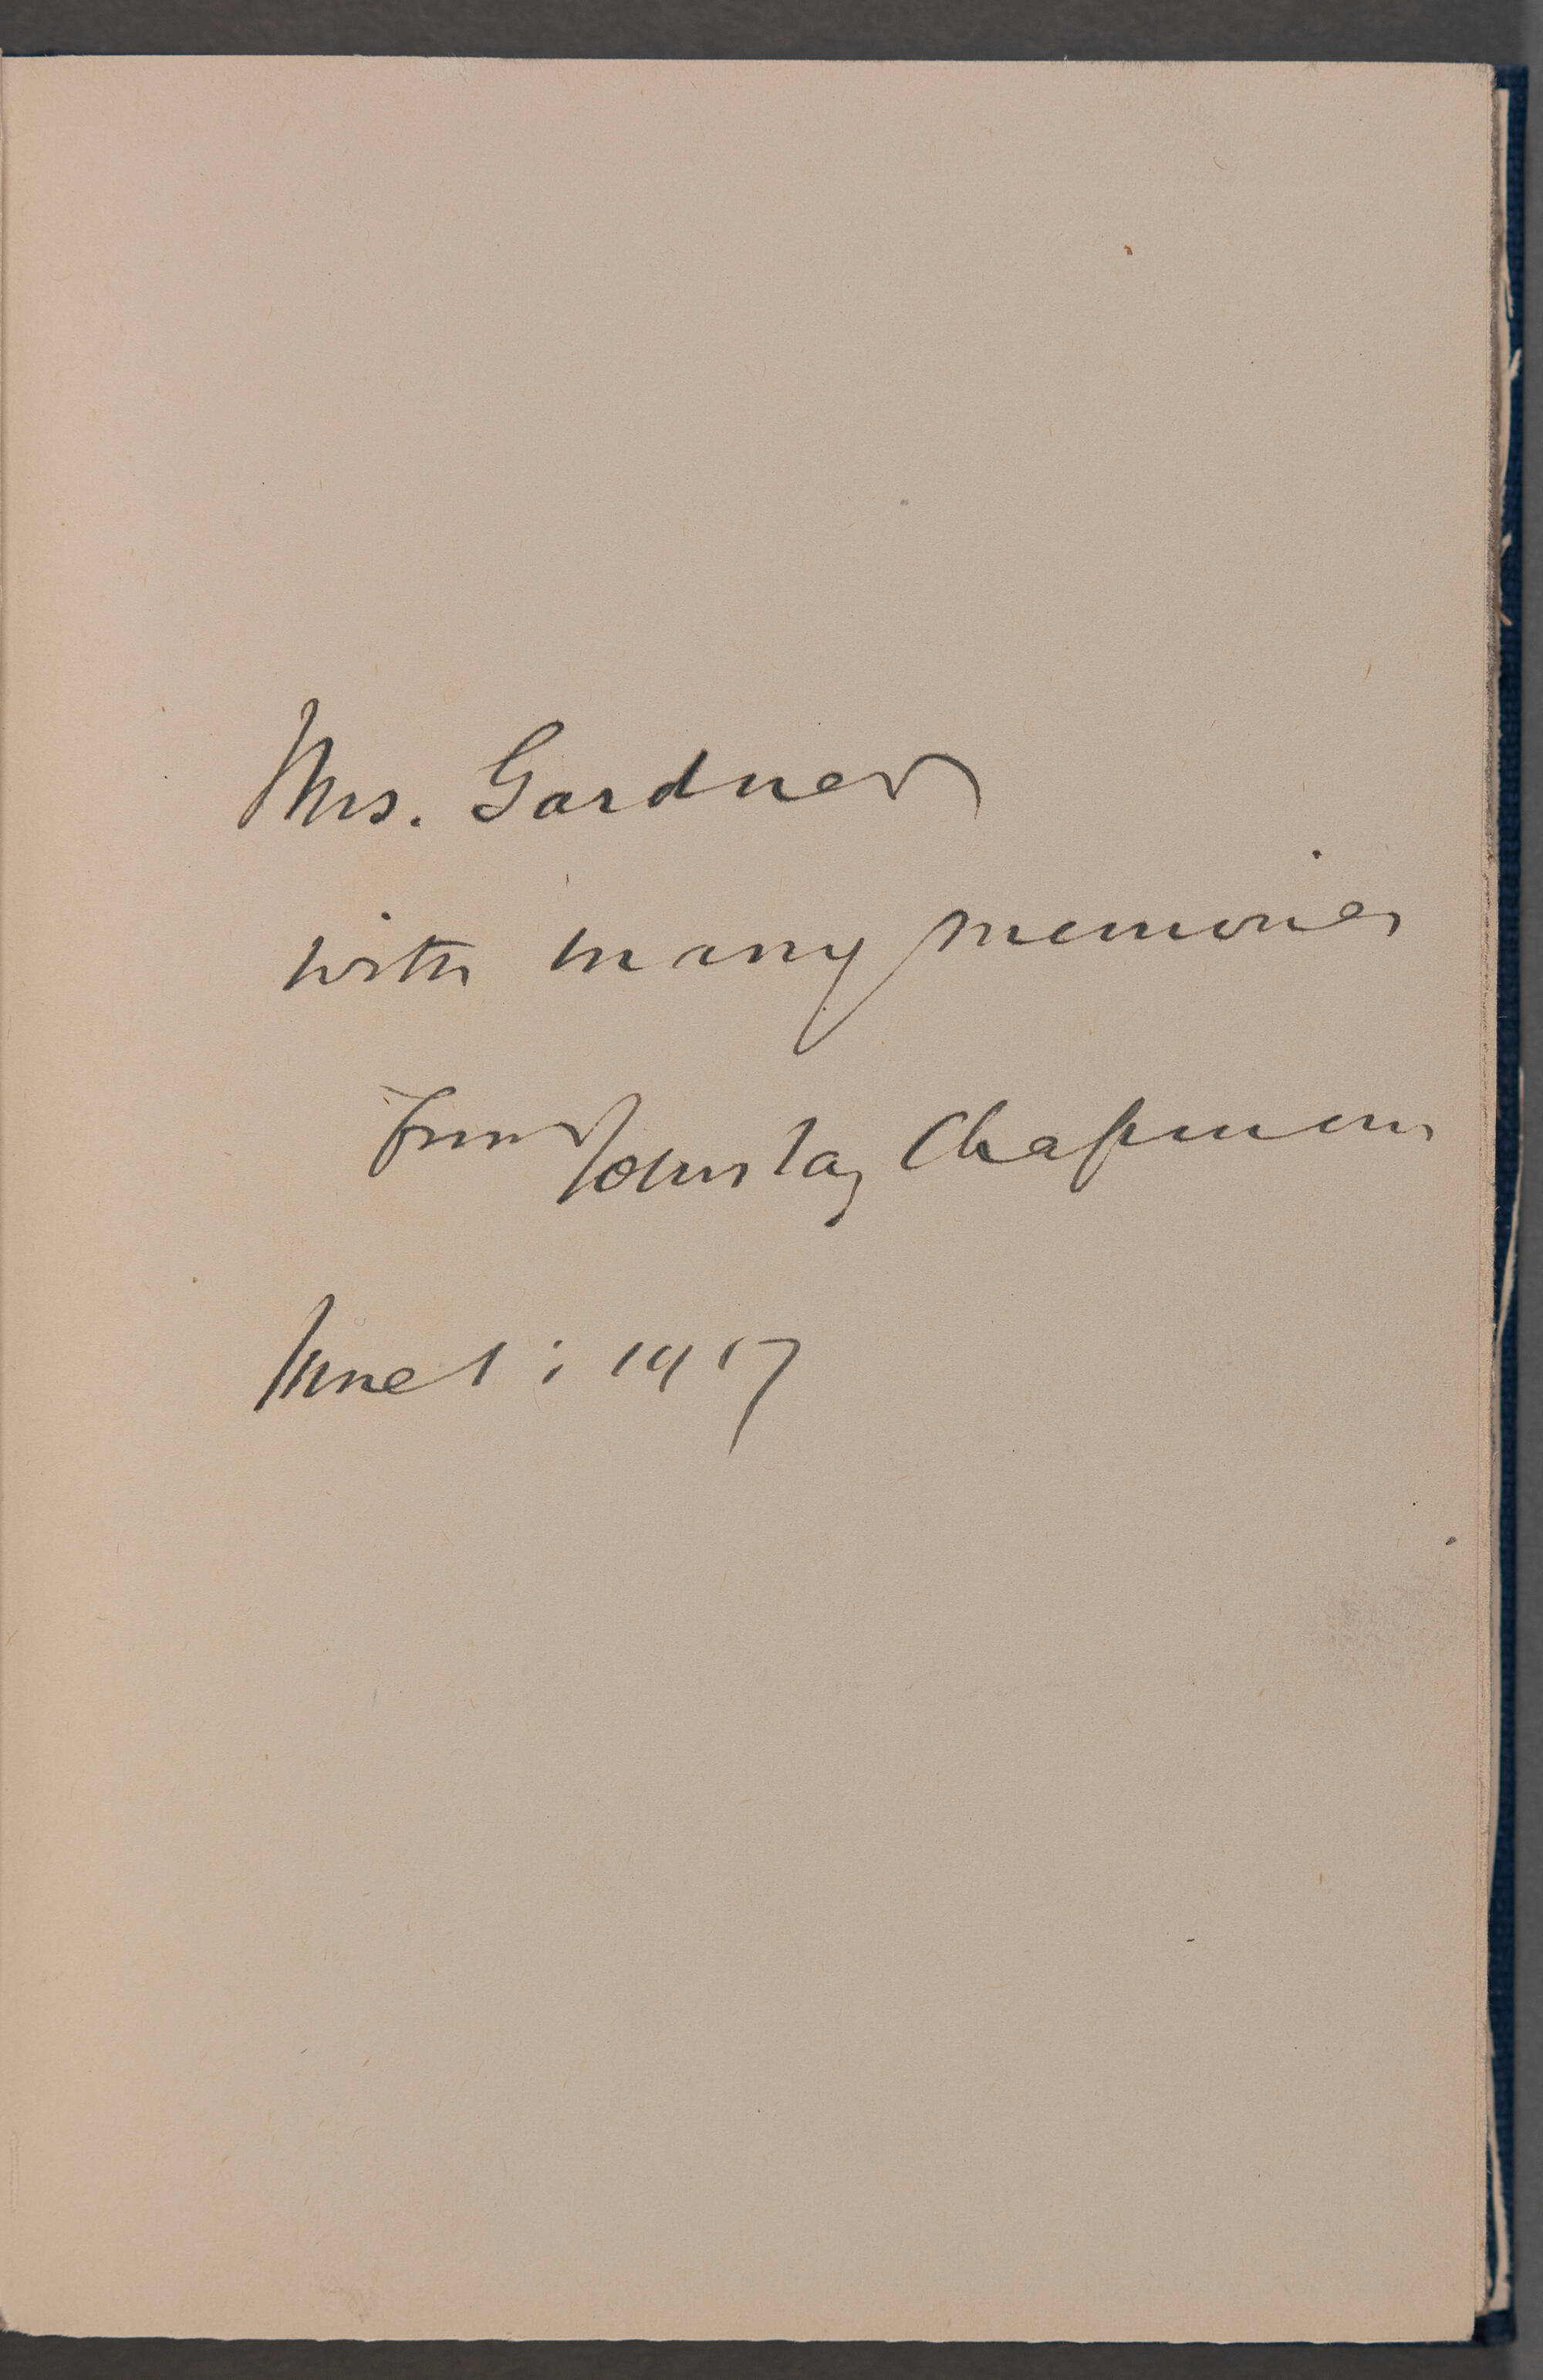 Mrs. Gardner
with many memories
from John Jay Chapman
June 1; 1917